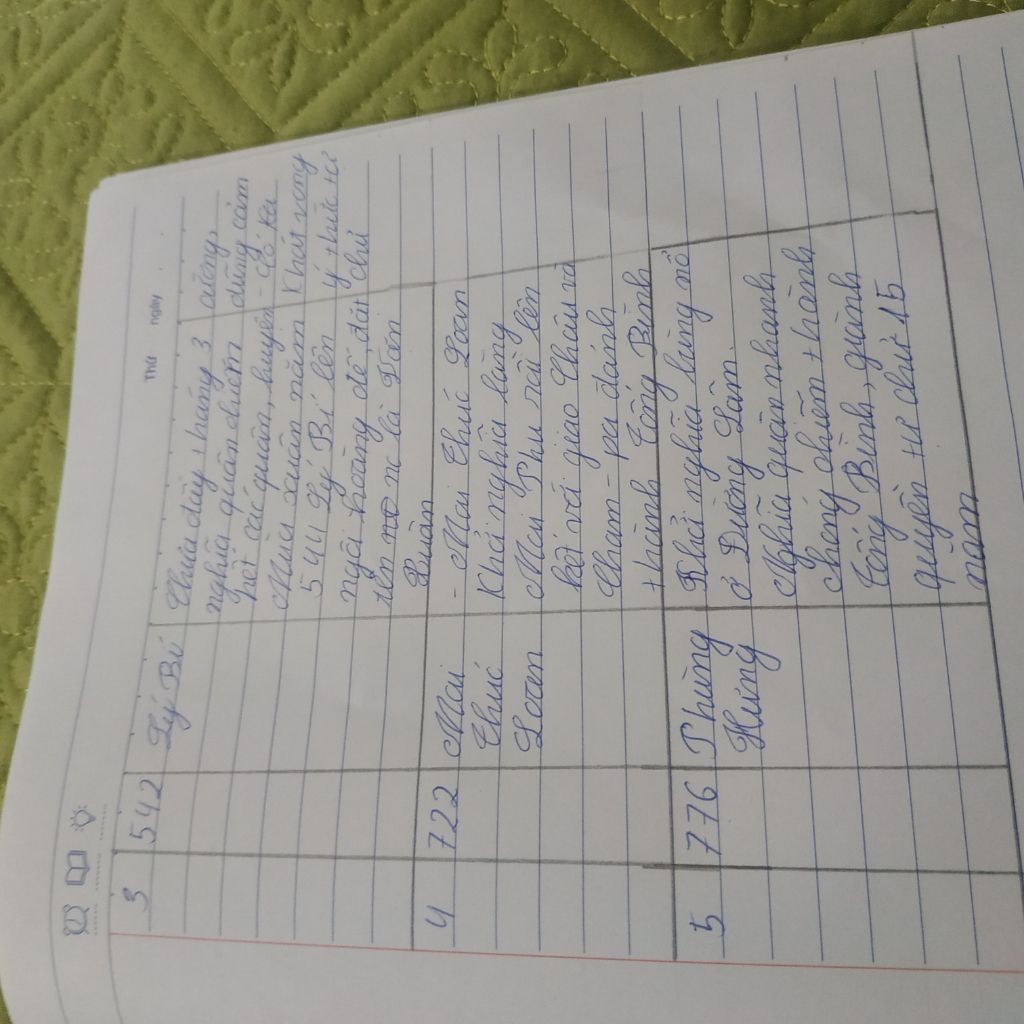 Thứ ngày
3 542 Lý Bí Chưa đầy tháng 3
nghĩa quân chiếm
hết các quận, huyện
Mùa xuân năm
544 Lý Bí lên
ngôi hoàng đế, đặt
tên nc là Vạn
Xuân
dũng,
dũng cảm
- Có
Khát vọng
ý thức tự
chủ
4 722 Mai - Mai Thúc Loan
Thúc Khởi nghĩa bùng
Loan Mai Thu rồi liên
kết với giao Châu và
Cham-pa đánh
thành Tống Bình
5 776 Phùng Khởi nghĩa bùng nổ
Hưng ở Đường Lâm.
Nghĩa quân nhanh
chóng chiếm thành
Tống Bình, giành
quyền tự chủ 15
năm